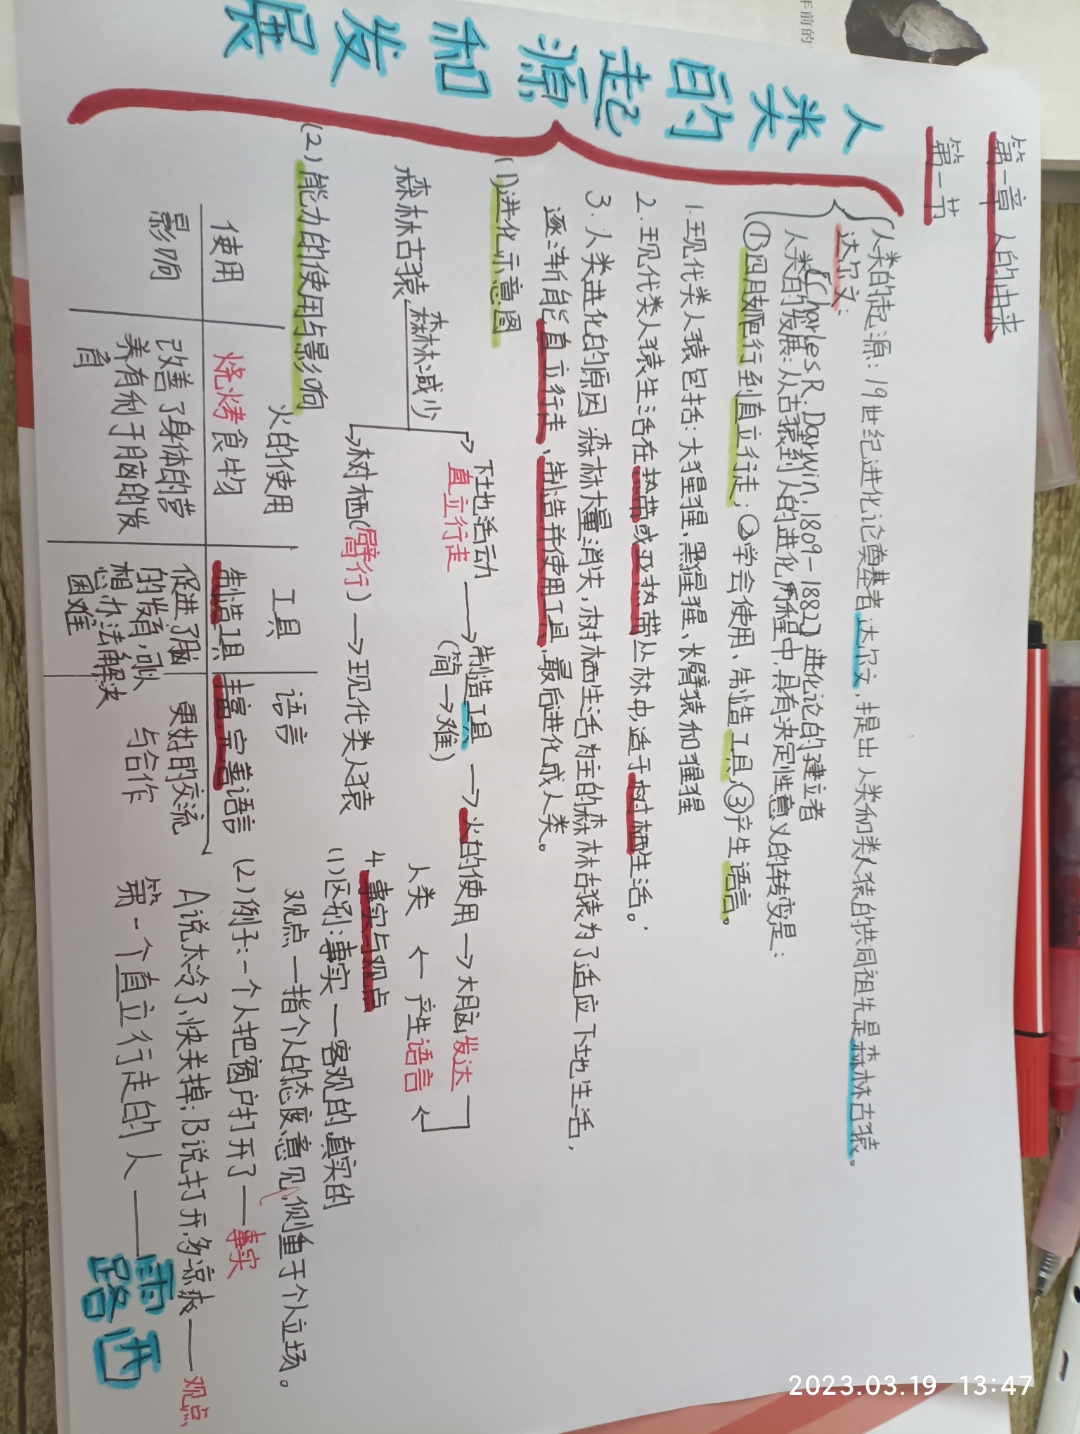 第一章 人的由来
第一节
人类的起源和发展
人类的起源：19世纪进化论奠基者达尔文，提出人类和类人猿的共同祖先是森林古猿。
达尔文：[Charles.R.Darwin.1809-1882] 进化论的建立者
人类的发展：从古猿到人的进化历程中，具有决定性意义的转变是：
①四肢爬行到直立行走；②学会使用、制造工具；③产生语言。
1.现代类人猿包括：大猩猩、黑猩猩、长臂猿和猩猩
2.现代类人猿生活在热带或亚热带丛林中，适于树栖生活。
3.人类进化的原因 森林大量消失，树栖生活为主的森林古猿为了适应下地生活，
逐渐能直立行走、制造并使用工具，最后进化成人类。
(1)进化示意图
下地活动
直立行走
制造工具
(简→难)
火的使用→大脑发达
森林古猿
森林减少
人类←产生语言
树栖(臂行)→现代类人猿
(2)能力的使用与影响
火的使用 工具 语言
使用 烧烤食物 制造工具 丰富、完善语言
影响 改善了身体的营
养有利于脑的发
育
促进了脑
的发育，可以
想办法解决
困难
更好的交流
与合作
4.事实与观点
(1)区别：事实—客观的，真实的
观点—指个人的态度、意见，侧重于个人立场。
(2)例子：一个人把窗户打开了—事实
A说太冷了，快关掉；B说打开，多凉爽——观点
第一个直立行走的人——露西
年前的
2023.03.19 13:47